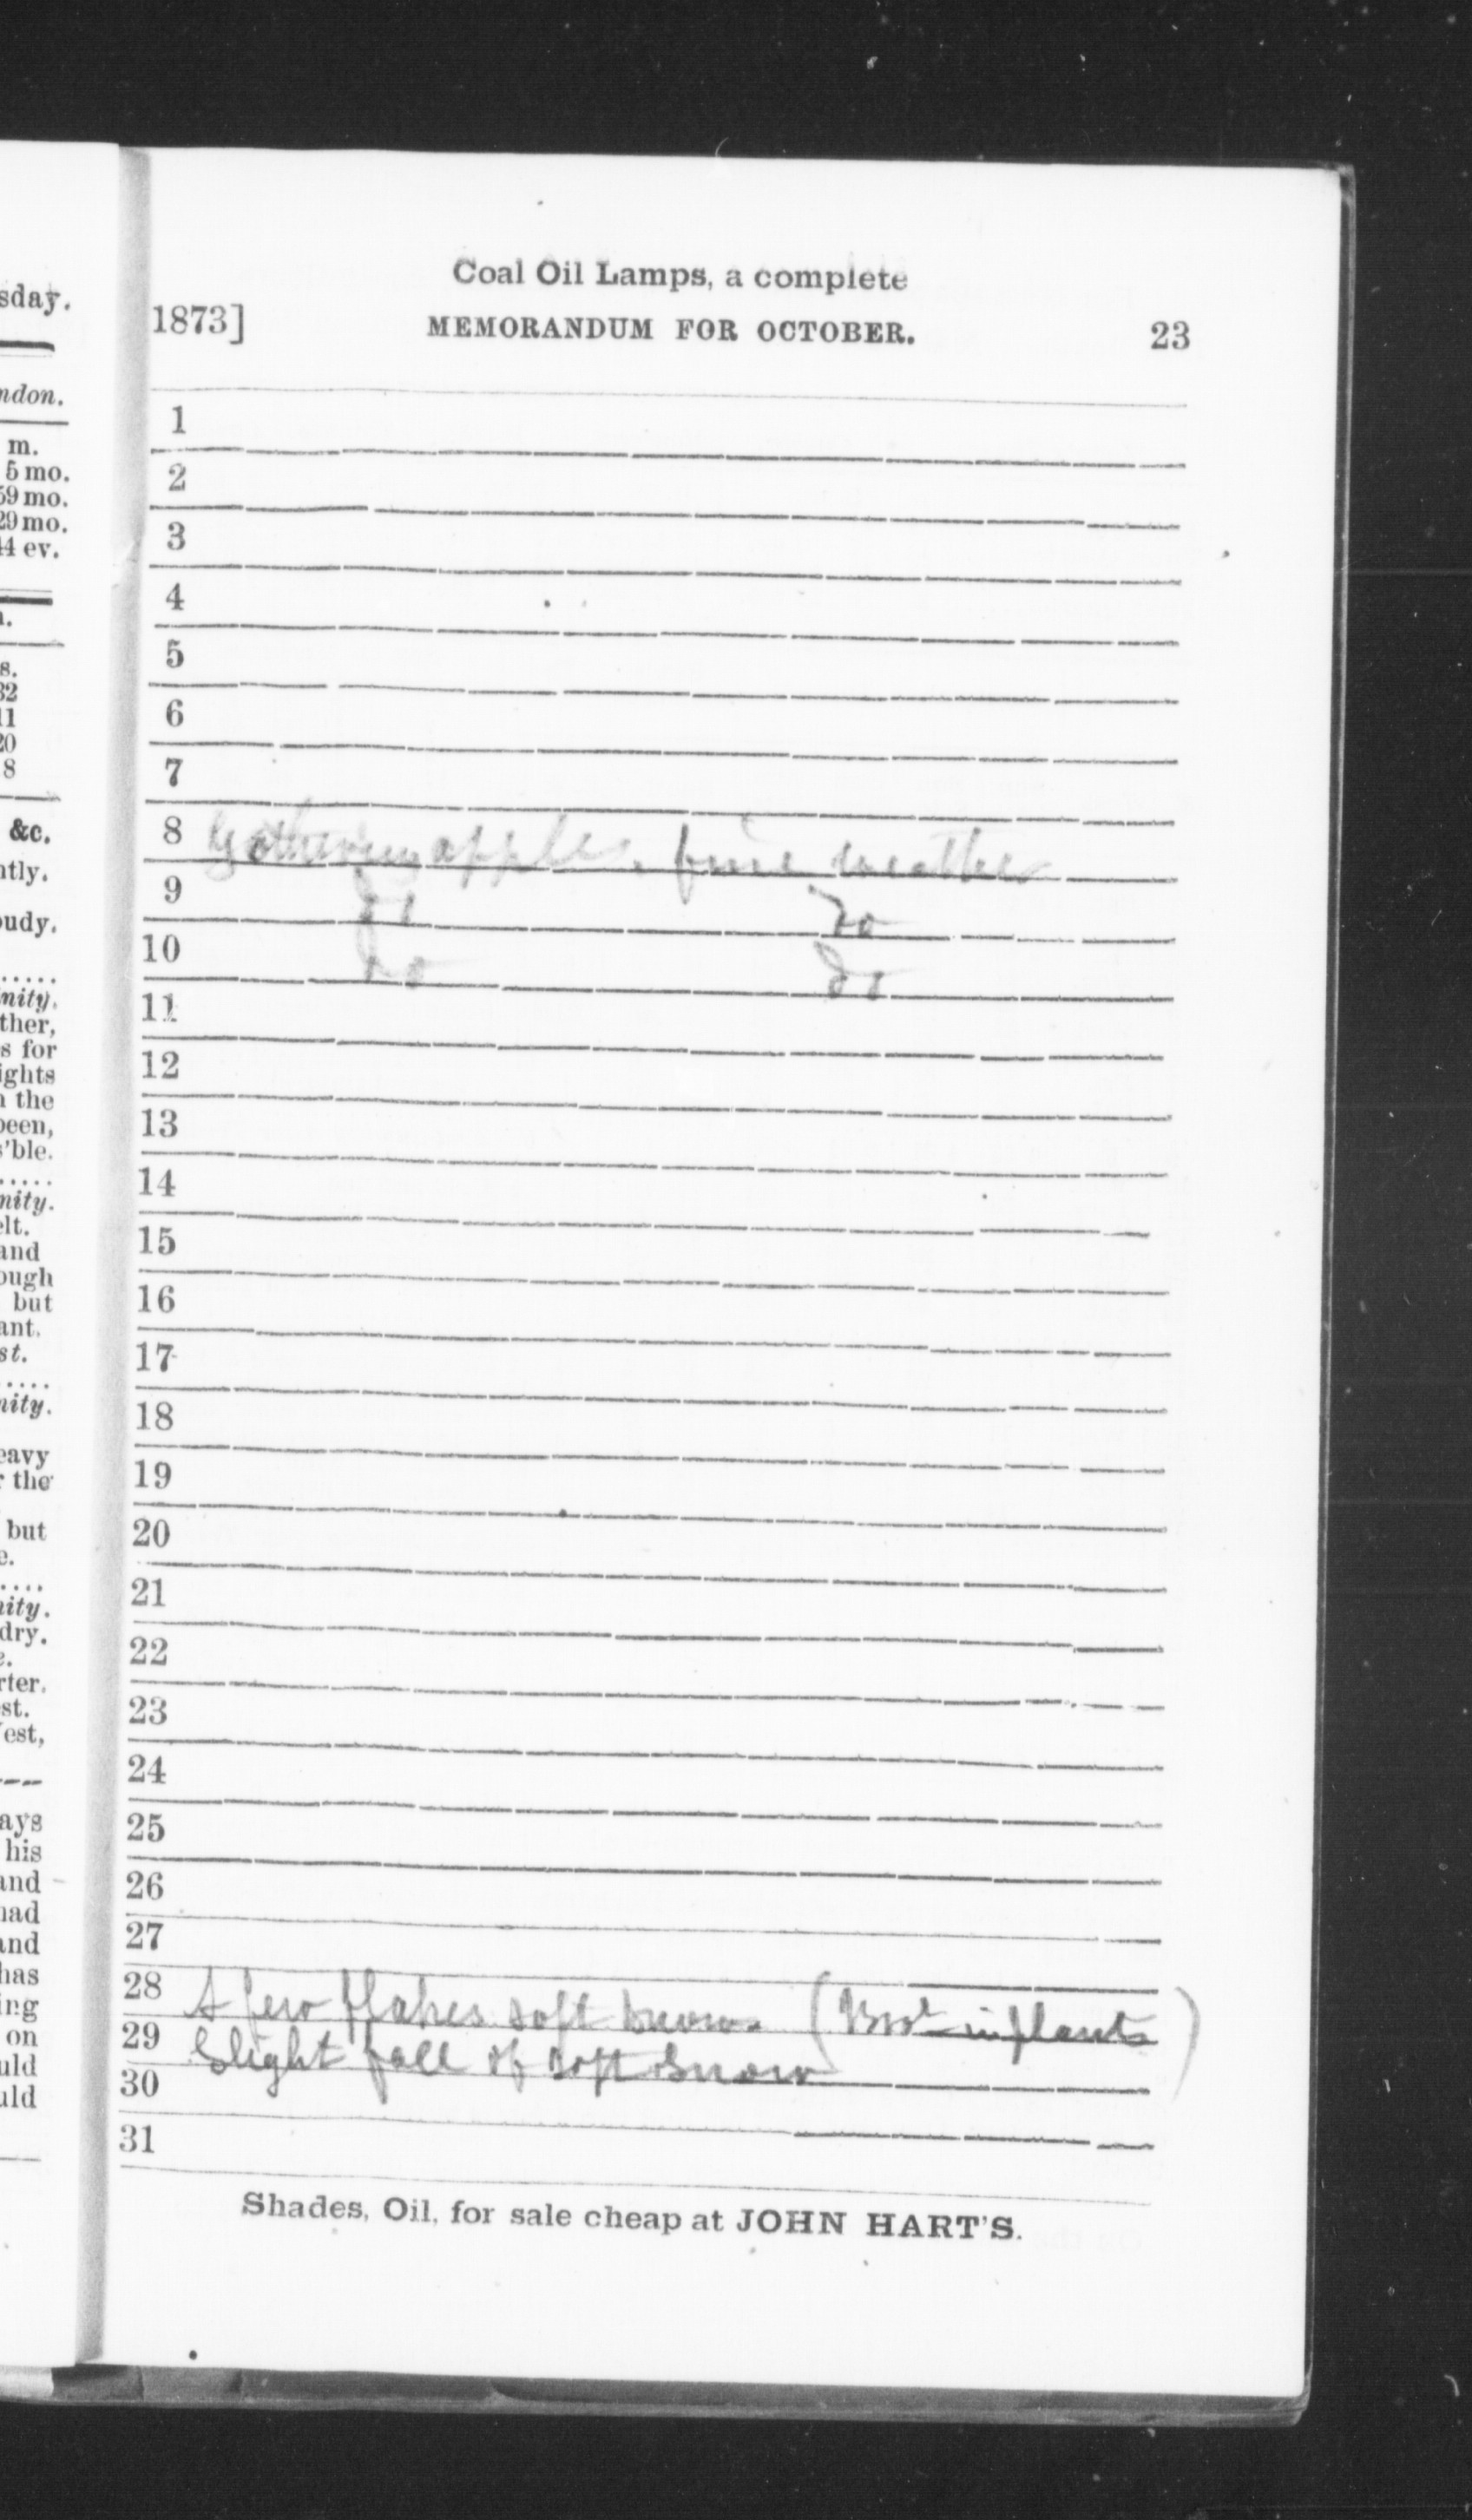 sday.
ndon.
m.
5 mo.
59 mo.
29 mo.
44 ev.
s.
32
11
20
8
&c.
ntly.
oudy.
.....
nity.
ther,
s for
ights
n the
been,
s'ble.
.....
nity.
elt.
and
ough
but
ant.
st.
....
nity.
eavy
r the
but
e.
....
nity.
dry.
e.
rter.
st.
est,
ays
his
and
had
and
has
ing
on
uld
uld
Coal Oil Lamps, a complete
1873] MEMORANDUM FOR OCTOBER. 23
1
2
3
4
5
6
7
8 Gathering apples. fine weather
9 do do
10 do do
11
12
13
14
15
16
17
18
19
20
21
22
23
24
25
26
27
28 A few flakes soft snow. (Brot in plants)
29 Slight fall of soft snow
30
31
Shades, Oil, for sale cheap at JOHN HART'S.